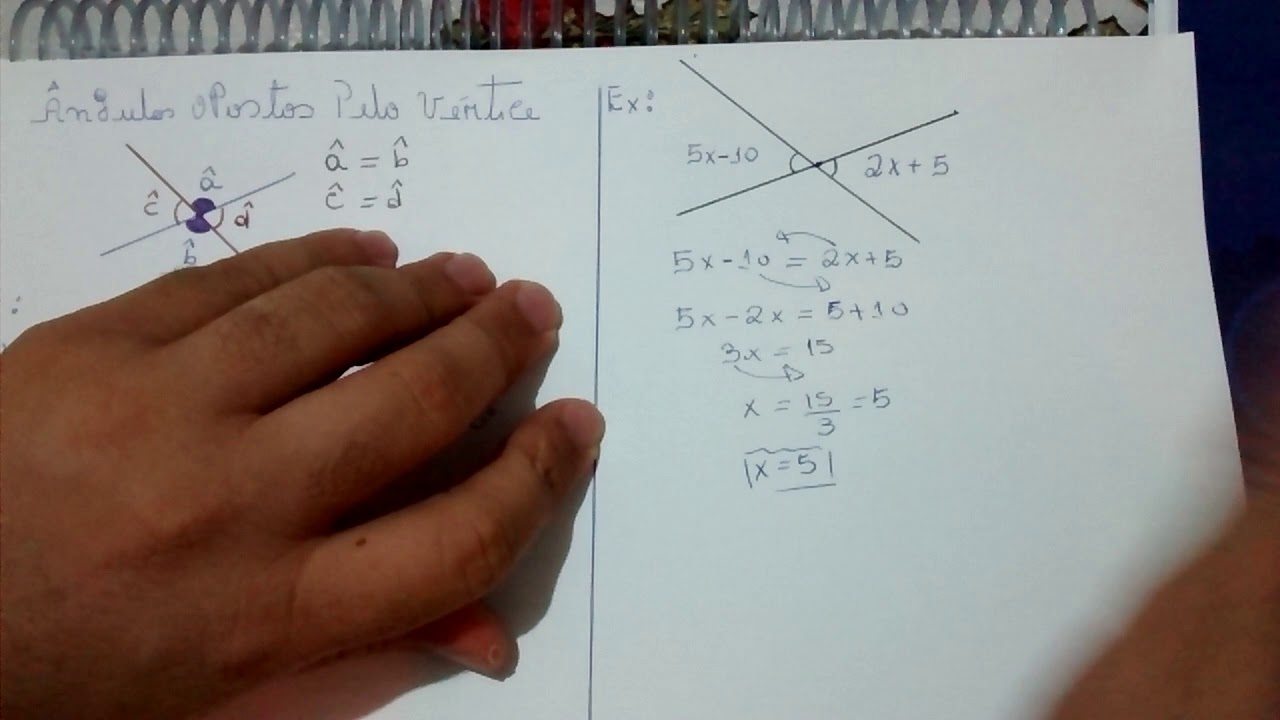 Ângulos Opostos Pelo Vértice
â = b̂
ĉ = d̂
â
ĉ
d̂
b̂
:
Ex:
5x-10
2x+5
5x-10 = 2x+5
5x-2x = 5+10
3x = 15
x = 15/3 = 5
x = 5